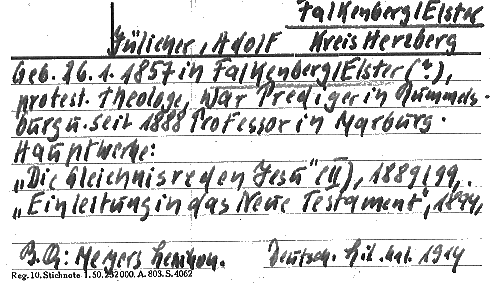 Falkenberg/Elster
Jülicher, Adolf Kreis Herzberg
Geb. 26.1.1857 in Falkenberg/Elster (?),
protest. Theologe, war Prediger in Rummels-
burg u. seit 1888 Professor in Marburg.
Hauptwerke:
„Die Gleichnisreden Jesu" (II), 1889/99,
„Einleitung in das Neue Testament", 1894,
B.Q.: Meyers Lexikon. Deutsch. Lit. 1914
Reg. 10. Stichnote 1. 50. 252000. A. 803. S. 4062